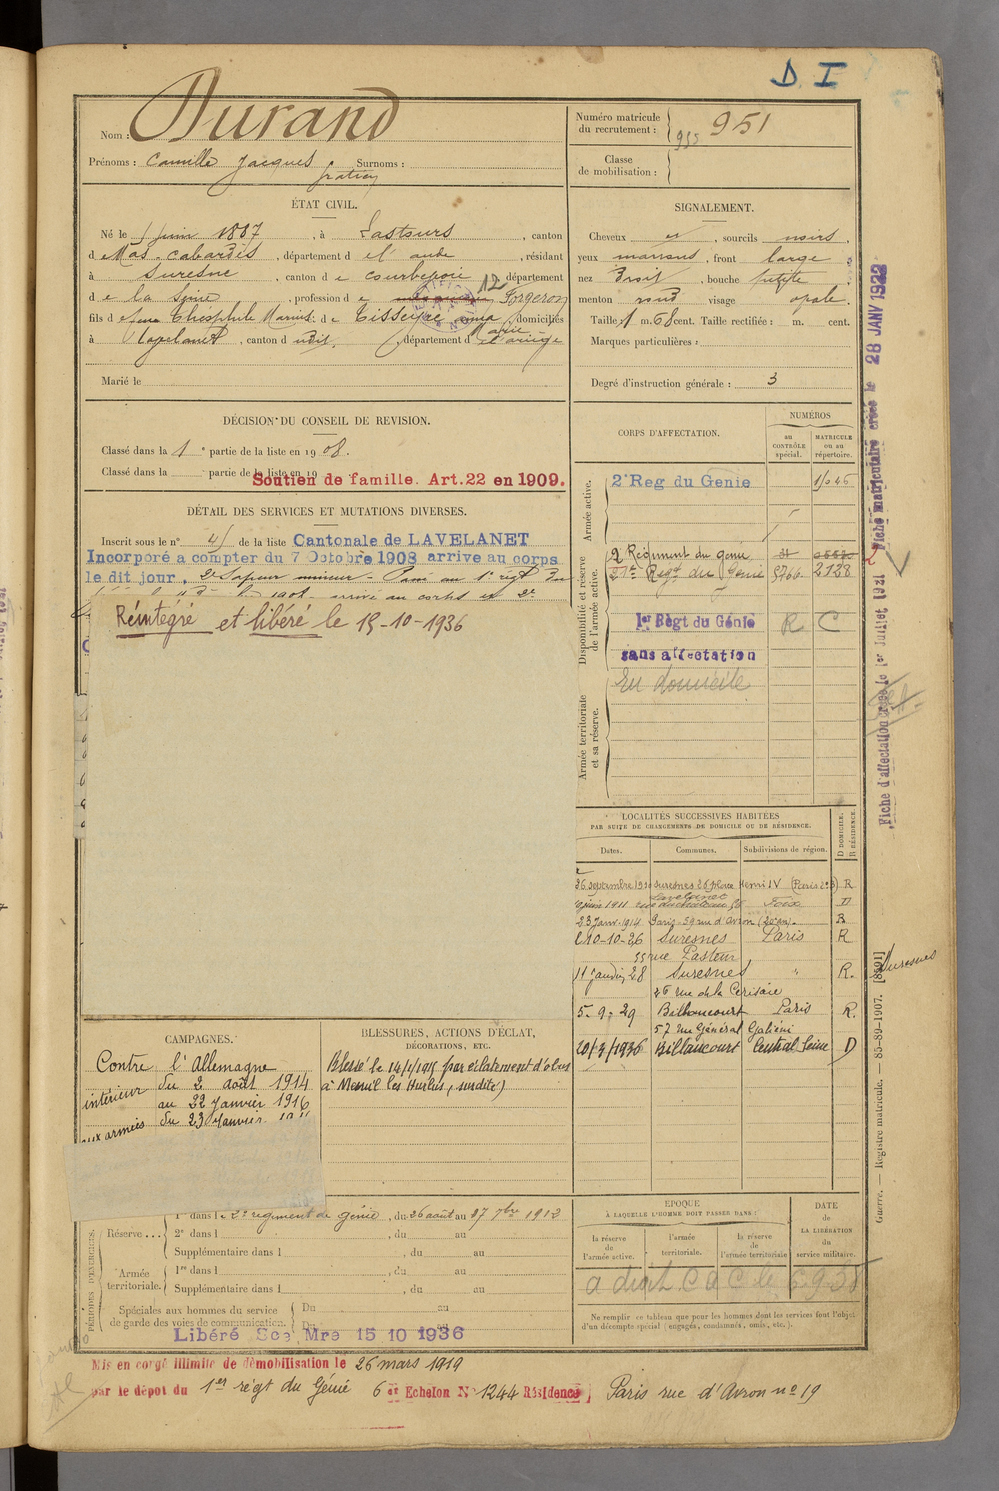 D. I
Nom : Durand
Prénoms : Camille Jacques Surnoms :
Numéro matricule
du recrutement : 951
Classe
de mobilisation :
ÉTAT CIVIL.
Né le 1 juin 1887, à Lastours, canton
d e Mas-Cabardès, département d e l'aude, résidant
à Suresne, canton d e Courbevoie, département
d e la Seine, profession d e 12 Forgeron
fils d e feu Théophile et d e Tisseyre Marie domiciliés
à Lavelanet, canton d udit, département d e l'ariège
Marié le
SIGNALEMENT.
Cheveux , sourcils noirs,
yeux marrons, front large
nez Droit, bouche petite
menton rond visage ovale.
Taille : 1 m. 68 cent. Taille rectifiée : m. cent.
Marques particulières :
Degré d'instruction générale : 3
DÉCISION DU CONSEIL DE REVISION.
Classé dans la 1e partie de la liste en 1908.
Classé dans la partie de la liste en 19
Soutien de famille. Art. 22 en 1909.
DÉTAIL DES SERVICES ET MUTATIONS DIVERSES.
Inscrit sous le n° 45 de la liste Cantonale de LAVELANET
Incorporé a compter du 7 Octobre 1908 arrive au corps
le dit jour, 2e Sapeur mineur - Passé au 1e régt du
1908 arrivé au corps
Réintégré et libéré le 15-10-1936
CORPS D'AFFECTATION.
NUMÉROS
au CONTRÔLE spécial.
MATRICULE ou au répertoire.
Armée active.
2e Reg du Genie
Disponibilité et réserve de l'armée active.
2 Régiment du genie 31
21e Regt du Génie 5766. 2128
1er Régt du Génie R C
sans affectation
En domicile
Armée territoriale et sa réserve.
LOCALITÉS SUCCESSIVES HABITÉES
PAR SUITE DE CHANGEMENTS DE DOMICILE OU DE RÉSIDENCE.
Dates. Communes. Subdivisions de région. D DOMICILE. R RÉSIDENCE.
26 septembre 1910 Suresnes 26 place Henri IV (Paris R
juin 1911 Lavelanet rue du château 58 Foix D
23 Janv. 1914 Paris - 59 rue d'Avron (20e arr). R
10-10-26 Suresnes Paris R
55 rue Pasteur
11 janvier 28 Suresnes " R.
26 rue de la Cerisaie
5-9-29 Billancourt Paris R.
57 rue Général Galiéni
20/3/1936 Billancourt Central Seine D
CAMPAGNES.
Contre l'Allemagne
intérieur du 2 août 1914
au 22 Janvier 1916
aux armées du 23 Janvier
BLESSURES, ACTIONS D'ÉCLAT,
DÉCORATIONS, ETC.
Blessé le 14/1/1915 par éclatement d'obus
à Mesnil les Hurlus, (surdité)
PÉRIODES D'EXERCICES.
Réserve ... 1re dans l e 2e régiment de génie, du 26 août au 27 7bre 1912
2e dans l , du au
Supplémentaire dans l , du au
Armée territoriale. 1re dans l , du au
Supplémentaire dans l , du au
Spéciales aux hommes du service
de garde des voies de communication. Du au
Du au
Libéré Sce Mre 15 10 1936
ÉPOQUE
À LAQUELLE L'HOMME DOIT PASSER DANS :
la réserve de l'armée active.
l'armée territoriale.
la réserve de l'armée territoriale
DATE
de LA LIBÉRATION
du service militaire.
a droit C a C le 6-9-35
Ne remplir ce tableau que pour les hommes dont les services font l'objet
d'un décompte spécial (engagés, condamnés, omis, etc.).
Mis en congé illimité de démobilisation le 26 mars 1919
par le dépôt du 1er régt du Génie 6 e Echelon No 1244 Résidence Paris rue d'Avron no 19
Fiche matriculaire créée le 28 JANV 1922
Fiche d'affectation créée le 1er Juillet 1921
Suresnes
Guerre. — Registre matricule. — 85-89-1907. [8891]